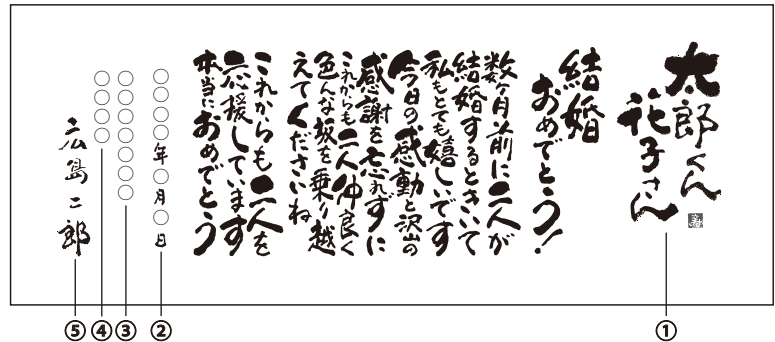 太郎くん
花子さん
結婚
おめでとう!
数ヶ月前に二人が
結婚するときいて
私もとても嬉しいです
今日の感動と沢山の
感謝を忘れずに
これからも二人仲良く
色んな坂を乗り越
えてくださいね
これからも二人を
応援しています
本当におめでとう
〇〇〇〇年〇月〇日
〇〇〇〇〇〇〇
〇〇〇〇
広島二郎
⑤ ④ ③ ② ①